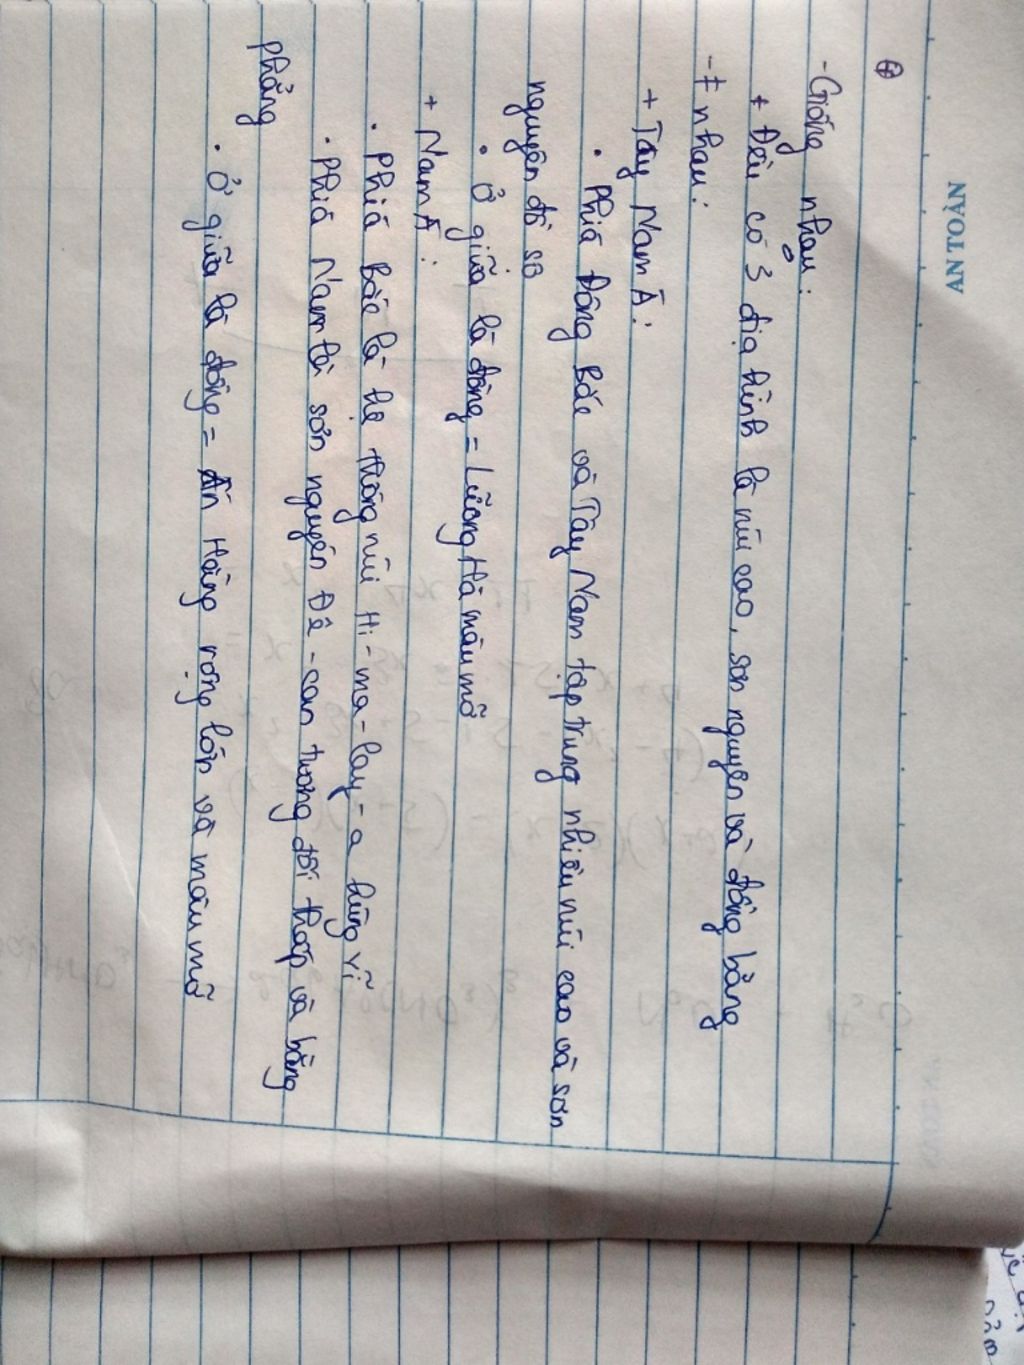 AN TOÀN
- Giống nhau:
+ Đều có 3 địa hình là núi cao, sơn nguyên và đồng bằng
- ≠ nhau:
+ Tây Nam Á:
• Phía Đông Bắc và Tây Nam tập trung nhiều núi cao và sơn
nguyên đồ sộ
• Ở giữa là đồng = Lưỡng Hà màu mỡ
+ Nam Á:
• Phía Bắc là hệ thống núi Hi-ma-lay-a hùng vĩ
• Phía Nam là sơn nguyên Đê-can tương đối thấp và bằng
phẳng
• Ở giữa là đồng = Ấn Hằng rộng lớn và màu mỡ